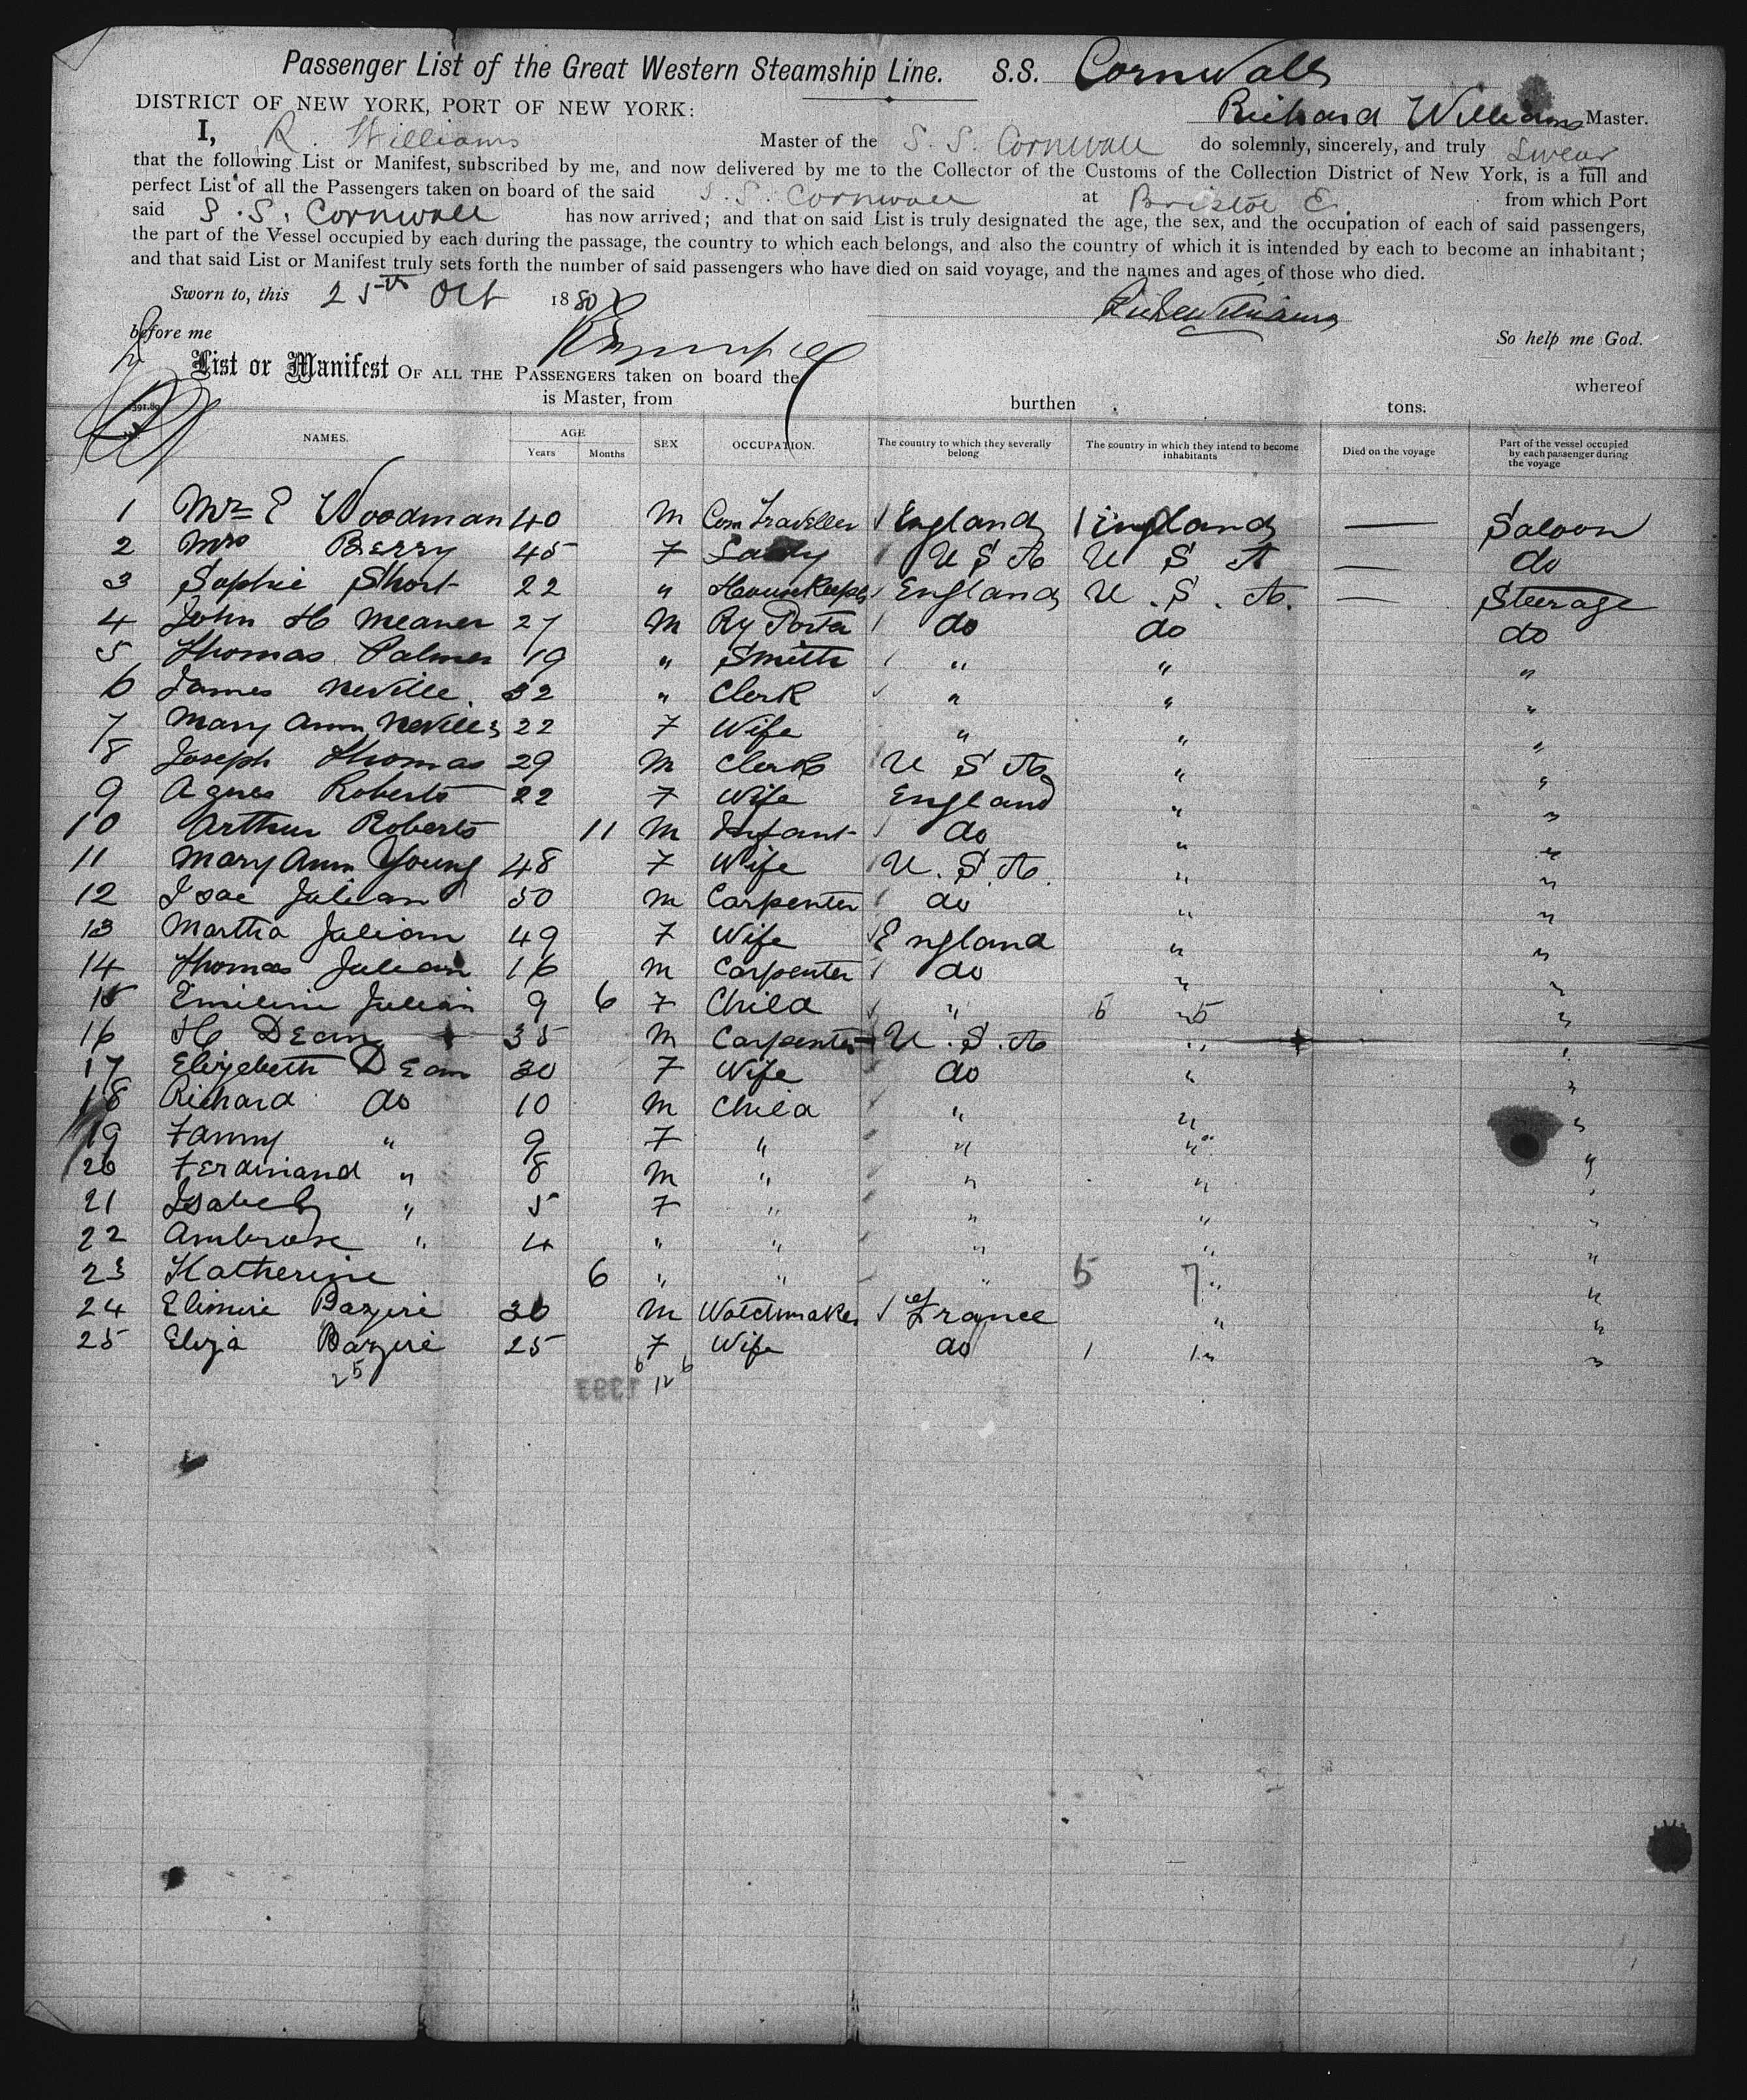 Passenger List of the Great Western Steamship Line. S.S. Cornwall
DISTRICT OF NEW YORK, PORT OF NEW YORK: Richard Williams Master.
I, R. Williams Master of the S. S. Cornwall do solemnly, sincerely, and truly swear
that the following List or Manifest, subscribed by me, and now delivered by me to the Collector of the Customs of the Collection District of New York, is a full and
perfect List of all the Passengers taken on board of the said S. S. Cornwall at Bristol E. from which Port
said S. S. Cornwall has now arrived; and that on said List is truly designated the age, the sex, and the occupation of each of said passengers,
the part of the Vessel occupied by each during the passage, the country to which each belongs, and also the country of which it is intended by each to become an inhabitant;
and that said List or Manifest truly sets forth the number of said passengers who have died on said voyage, and the names and ages of those who died.
Sworn to, this 25th Oct 1880
before me So help me God.
List or Manifest OF ALL THE PASSENGERS taken on board the whereof
is Master, from burthen tons.
NAMES. AGE Years Months SEX OCCUPATION. The country to which they severally belong The country in which they intend to become inhabitants Died on the voyage Part of the vessel occupied by each passenger during the voyage
1 Mr E Woodman 40 M Com Traveller England England — Saloon
2 Mrs Berry 45 F Lady U S A U S A — do
3 Sophie Short 22 " Housekeeper England U. S. A. — Steerage
4 John H Meaner 27 M Ry Porter do do do
5 Thomas Palmer 19 " Smith " " "
6 James Neville 32 " Clerk " " "
7 Mary Ann Neville 22 F Wife " " "
8 Joseph Thomas 29 M Clerk U S A " "
9 Agnes Roberts 22 F Wife England " "
10 Arthur Roberts 11 M Infant do " "
11 Mary Ann Young 48 F Wife U. S. A. " "
12 Isac Julian 50 M Carpenter do " "
13 Martha Julian 49 F Wife England " "
14 Thomas Julian 16 M Carpenter do " "
15 Emiline Julian 9 6 F Child " 5 " 5 "
16 H Dean 35 M Carpenter U. S. A " "
17 Elizebeth Dean 30 F Wife do " "
18 Richard do 10 M Child " " "
19 Fanny " 9 F " " " "
20 Ferdinand " 8 M " " " "
21 Isabel " 5 F " " " "
22 Ambrose " 4 " " " " "
23 Katherine 6 " " " 5 7 " "
24 Elimire Bazire 30 M Watchmaker France " "
25 Eliza Bazire 25 F Wife do 1 1 " "
25 6 12 6